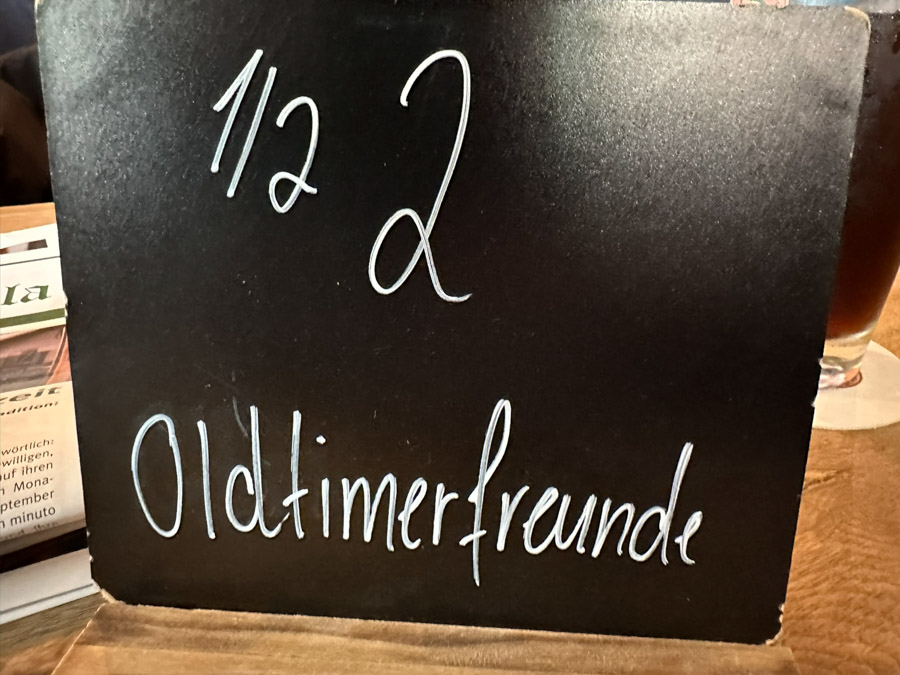 1/2 2
Oldtimerfreunde
la
zeit
wörtlich:
willigen,
auf ihren
Mona-
ptember
n minuto